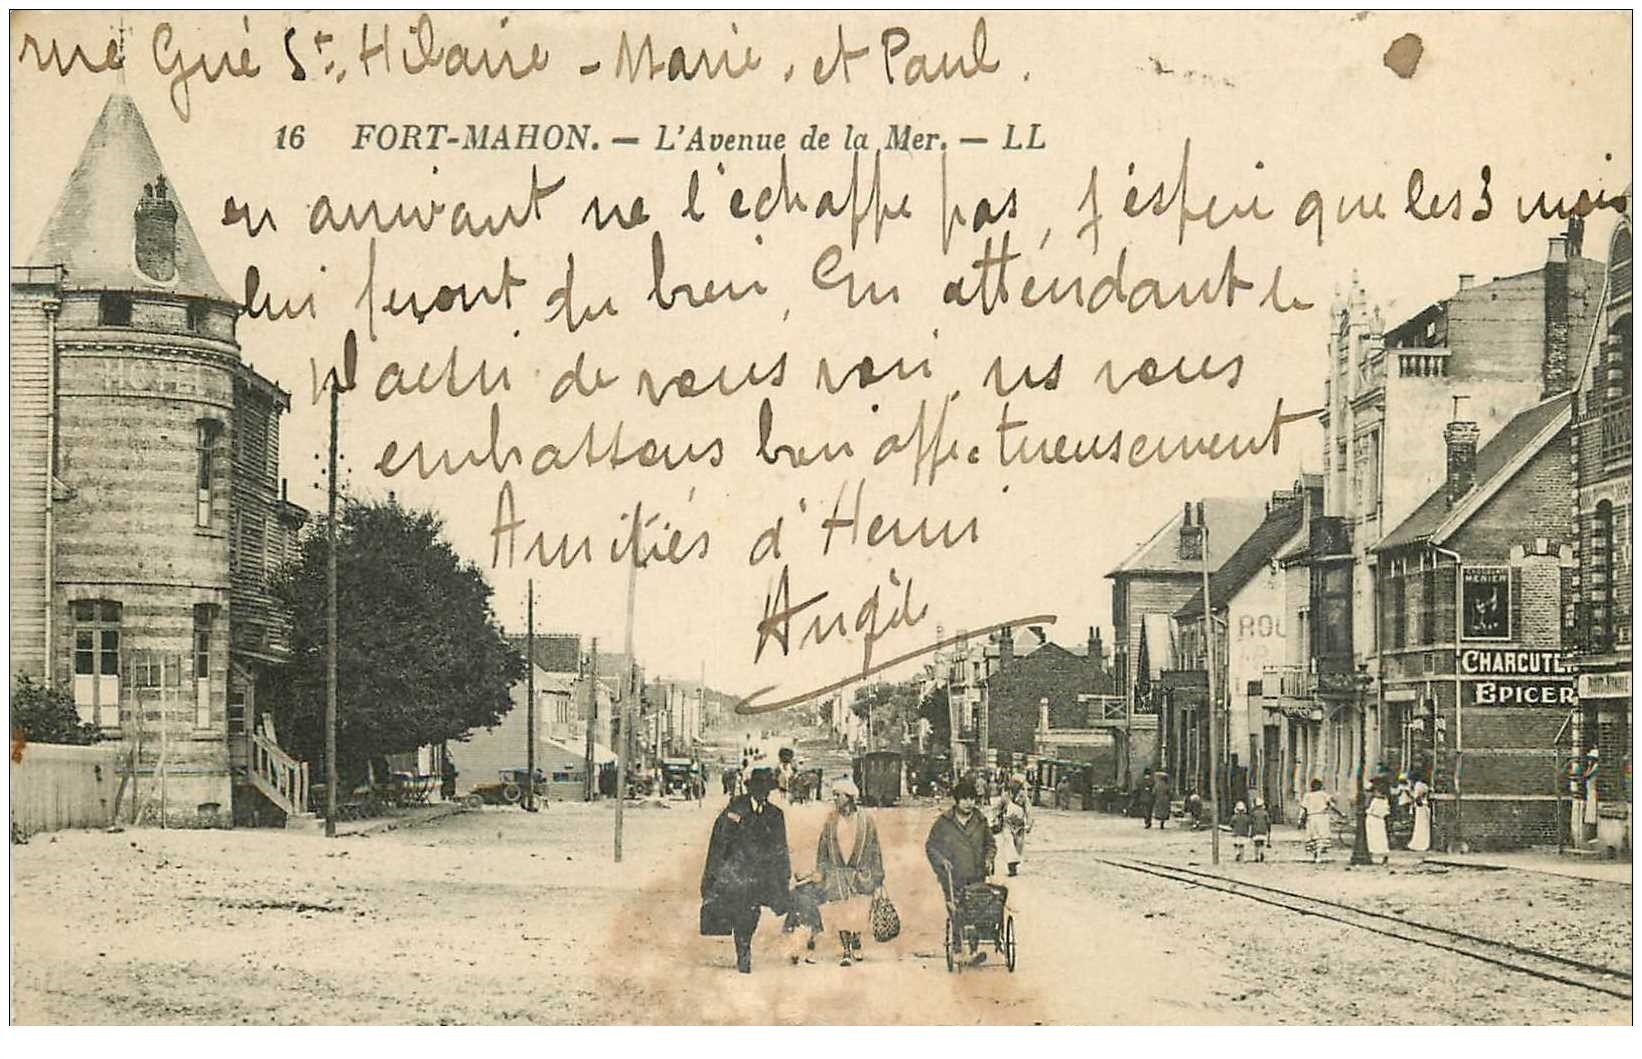 rue Gué St Hilaire - Marie, et Paul.
16 FORT-MAHON. — L'Avenue de la Mer. — LL
en arrivant ne l'échappe pas, j'espère que les 3 mois
lui feront du bien, En attendant le
plaisir de vous voir, ns vous
embrassons bien affectueusement
Amitiés d'Henri
HOTEL
Angèle
CHOCOLAT
MENIER
ROU
CHARCUTE
EPICER